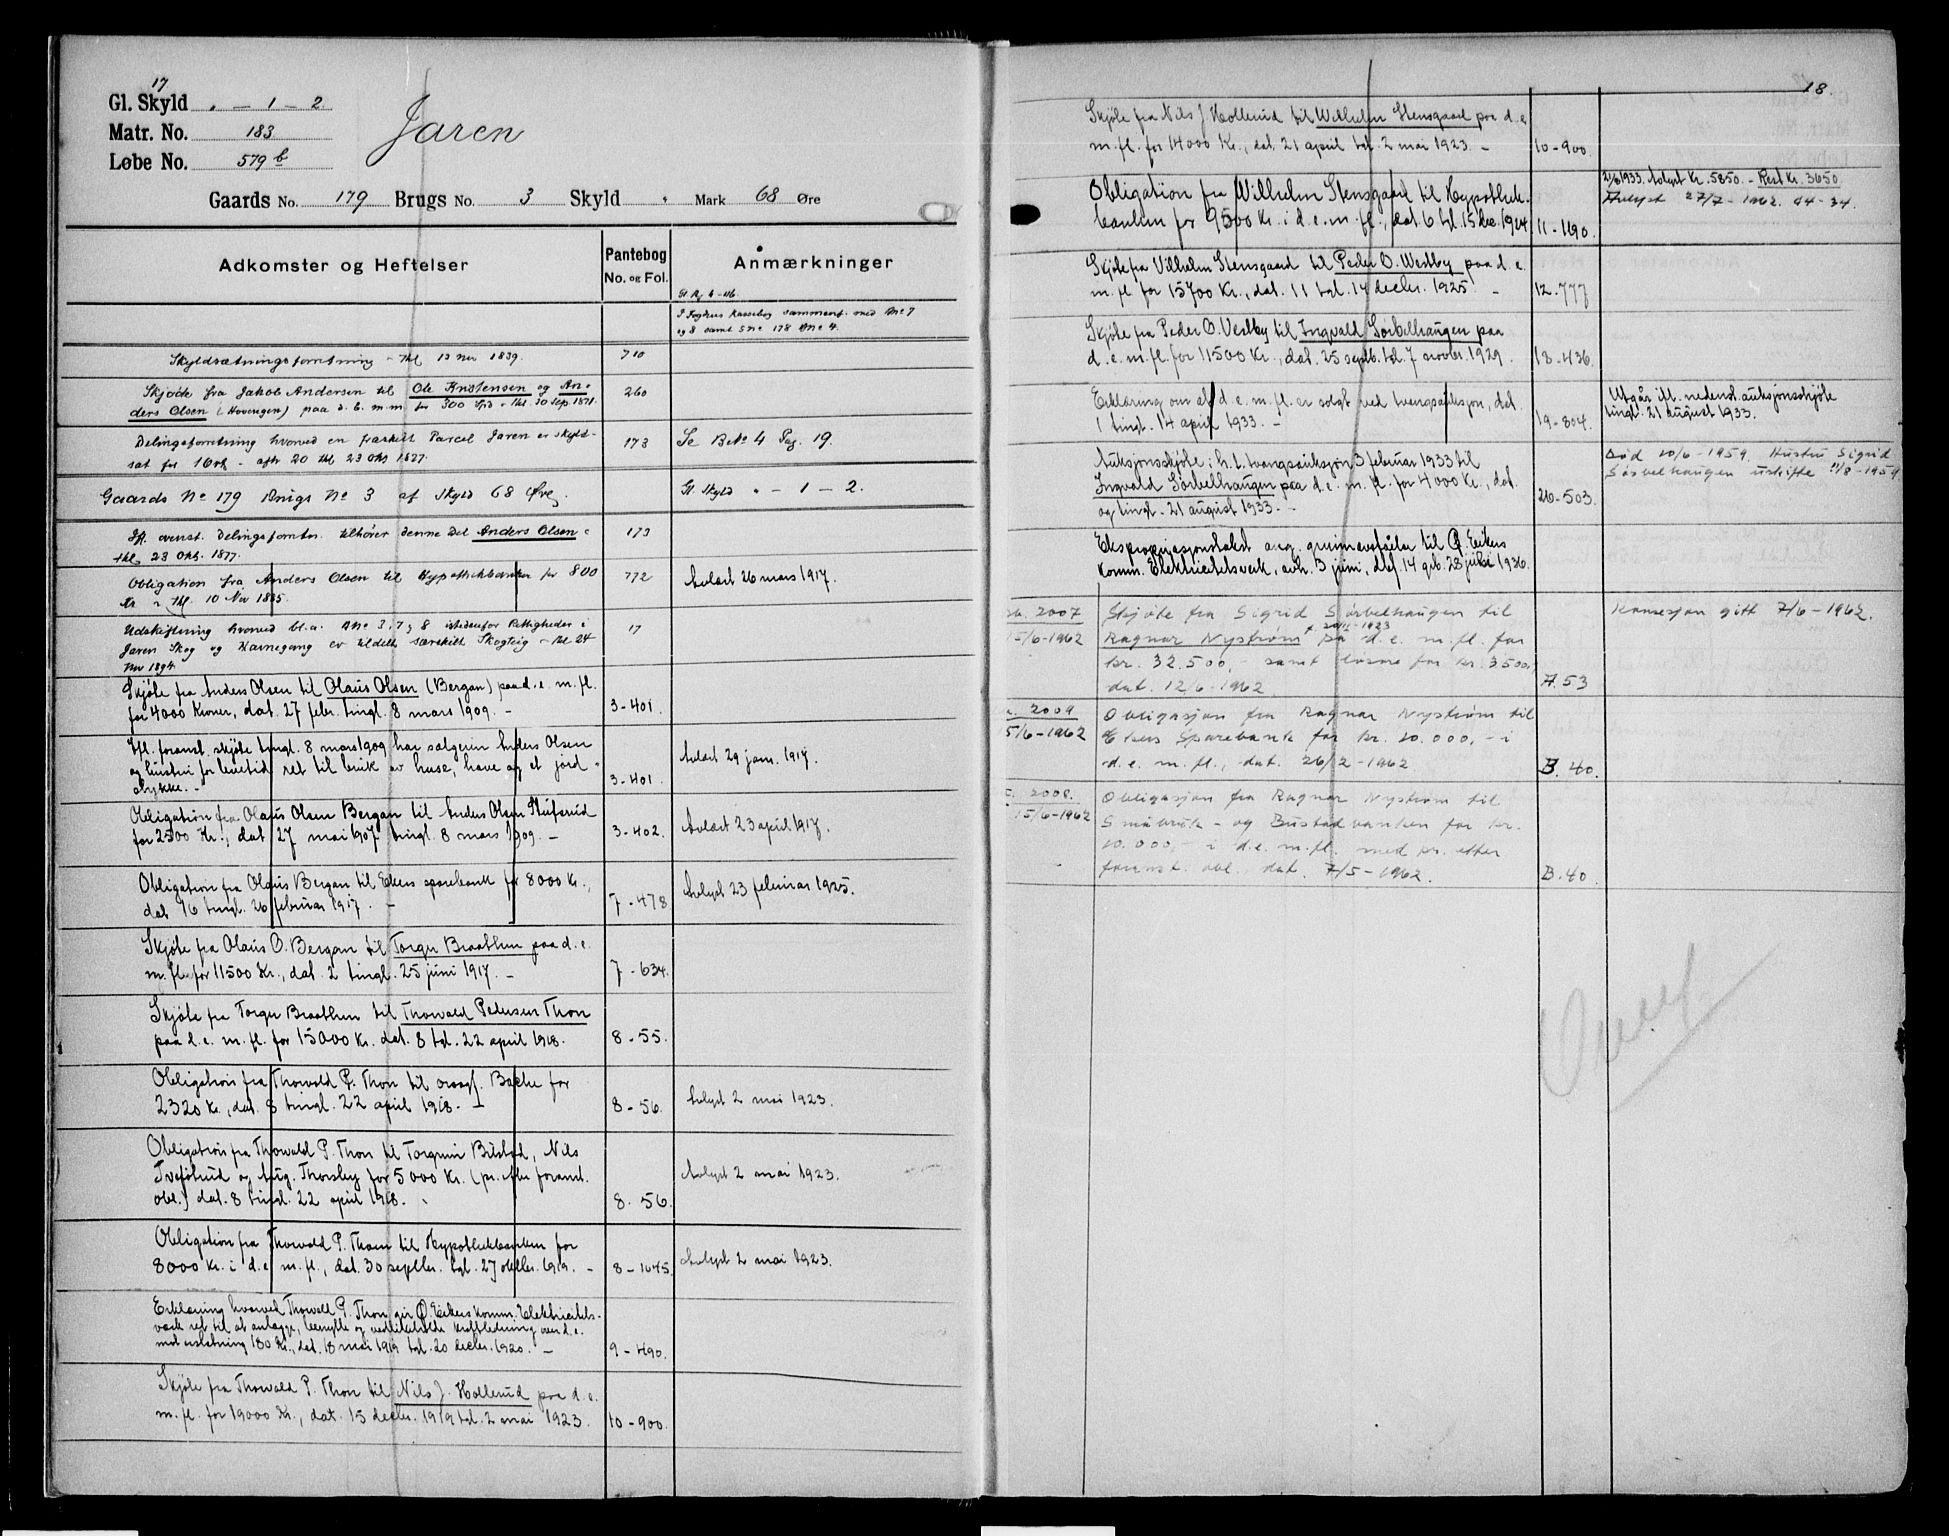 17
Gl. Skyld „ – 1 – 2
Matr. No. 183
Løbe No. 579 b
Jaren
Gaards No. 179 Brugs No. 3 Skyld „ Mark 68 Øre
Adkomster og Heftelser
Pantebog
No. og Fol.
Anmærkninger
og 8 samt Gno 178 Bno 4.
Skyldsætningsforretning – thl. 13 Nov 1839.
710
Skjøde fra Jakob Andersen til Ole Kristensen og An-
ders Olsen (Hovengen) paa d. b. m. m. for 300 Spd – thl. 30 Sep. 1871.
260
Delingsforretning hvorved en fraskilt Parcel Jaren er skyld-
sat for 16 – afh 20 thl 23 Okt 1877.
173
Se BNo 4 Pag. 19.
Gaards No 179 Brugs No 3 af Skyld 68 Øre.
Gl. Skyld „ – 1 – 2.
Ifl. ovenst. Delingsforretn. tilhører denne Del Anders Olsen –
thl. 23 Okt. 1877.
173
Obligation fra Anders Olsen til Hypothekbanken for 800
Kr. – thl. 10 Nov 1885.
772
Avlæst 26 mars 1917.
Udskiftning hvorved bl. a. BNo 3, 7, 8 istedenfor Rettigheder i
Jaren Skog og Havnegang er tildelt særskilt Skogteig – thl 24
Nov 1894.
17
Skjøte fra Anders Olsen til Olaus Olsen (Bergan) paa d. e. m. fl.
for 4000 Kroner, dat. 27 febr. tingl. 8 mars 1909. –
3-401.
Ifl. foranst. skjøte tingl. 8 mars 1909 har sælgeren Anders Olsen
og hustru for levetid ret til bruk av huse, have og et jord-
stykke. –
3-401.
Avlæst 29 jan. 1917.
Obligation fra Olaus Olsen Bergan til Anders Olsen
for 2500 Kr., dat 27 mai 1907 tingl. 8 mars 1909. –
3-402.
Avlæst 23 april 1917.
Obligation fra Olaus Bergan til Ekers sparebank for 8000 Kr.,
dat 16 tingl. 26 februar 1917. –
7-478
Avlyst 23 februar 1925.
Skjøte fra Olaus O. Bergan til Torger Braathen paa d. e.
m. fl. for 11500 Kr., dat. 2 tingl. 25 juni 1917. –
7-634.
Skjøte fra Torger Braathen til Thorvald Pedersen Thon
paa d. e. m. fl. for 15000 Kr. dat. 8 tgl. 22 april 1918.
8-55.
Obligation fra Thorvald P. Thon til Bache for
2320 Kr., dat. 8 tingl. 22 april 1918. –
8-56.
Avlyst 2 mai 1923.
Obligation fra Thorvald P. Thon til Torgrim Bilstad, Nils
og Aug. Thorsby for 5000 Kr. (pr. efter foranst.
obl.) dat. 8 tingl. 22 april 1918.
8.56.
Avlyst 2 mai 1923.
Obligation fra Thorvald P. Thon til Hypothekbanken for
8000 Kr. i d. e. m. fl., dat. 30 septbr. tgl. 27 oktbr. 1919. –
8-1045.
Avlyst 2 mai 1923.
Erklæring hvorved Thorvald P. Thon gir Ø. Eikers Komm. Elektricitets-
værk ret til at anlægge, benytte og vedlikeholde kraftledning over d. e.
mot erstatning 180 Kr., dat. 18 mai 1919 tgl. 20 decbr. 1920. –
9-490.
Skjøte fra Thorvald P. Thon til Nils J. Hollerud paa d. e.
m. fl. for 19000 Kr., dat. 15 decbr. 1919 tgl. 2 mai 1923.
10-900.
18
Skjøte fra Nils J. Hollerud til Wilhelm Stensgaard paa d. e.
m. fl. for 14000 Kr., dat. 21 april tgl. 2 mai 1923. –
10-900.
Obligation fra Wilhelm Stensgaard til Hypothek-
banken for 9500 Kr. i d. e. m. fl., dat. 6 tgl. 15 dec. 1924
11-1190.
21/6 1933. Avlyst Kr. 5850. – Rest Kr. 3650.
Avlyst 27/7 – 1962. 44-34.
Skjøte fra Vilhelm Stensgaard til Peder O. Westby paa d. e.
m. fl. for 15700 Kr., dat. 11 tgl. 14 decbr. 1925. –
12.777
Skjøte fra Peder O. Vestby til Ingvald Sørbelhaugen paa
d. e. m. fl. for 11500 Kr., dat. 25 septb. tgl. 7 novbr. 1929.
18-436.
Erklæring om at d. e. m. fl. er solgt ved tvangsauksjon, dat.
1 tingl. 14 april 1933. –
19-804.
Utgår ifl. nedenst. auksjonsskjøte
tingl. 21 august 1933.
Auksjonsskjøte i h. t. tvangsauksjon 3 februar 1933 til
Ingvald Sørbelhaugen paa d. e. m. fl. for 4000 Kr., dat.
og tingl. 21 august 1933. –
20-503.
Død 10/6 – 1959. Hustru Sigrid
Sørbelhaugen uskifte 11/8 – 1959
Ekspropriasjonstakst ang. grunnavståelse til Ø. Eikers
komm. Elektrisitetsverk, avh. 3 juni, dat 14 gb. 28 juli 1936.
2007
15/6-1962
Skjøte fra Sigrid Sørbelhaugen til
Ragnar Nystrøm f. 20/11-1923 på d. e. m. fl. for
kr. 32.500,- samt løsøre for kr. 3500,
dat. 12/6-1962.
A.53
Konsesjon gitt 7/6-1962.
2009
15/6-1962
Obligasjon fra Ragnar Nystrøm til
Eikers Sparebank for kr. 20.000,- i
d. e. m. fl., dat. 26/2-1962.
B.40.
2008.
15/6-1962
Obligasjon fra Ragnar Nystrøm til
Småbruk- og Bustadbanken for kr.
10.000,- i d.e. m.fl. med pr. etter
foranst. obl. dat. 7/5-1962.
B.40.